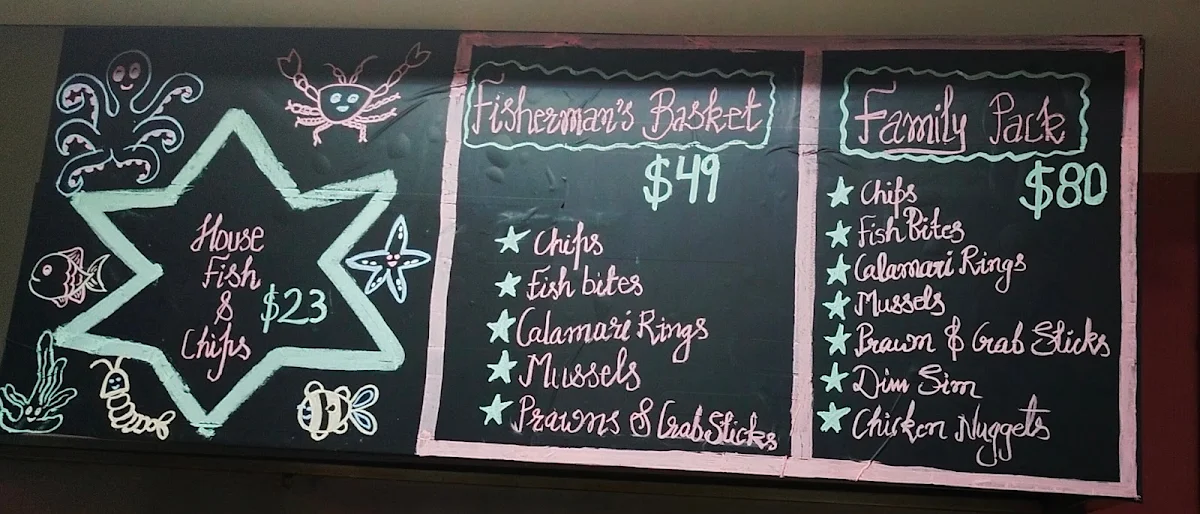 House
Fish
&
$23
Chips
Fisherman's Basket
$49
Chips
Fish bites
Calamari Rings
Mussels
Prawns & Crab Sticks
Family Pack
$80
Chips
Fish Bites
Calamari Rings
Mussels
Prawn & Crab Sticks
Dim Sim
Chicken Nuggets